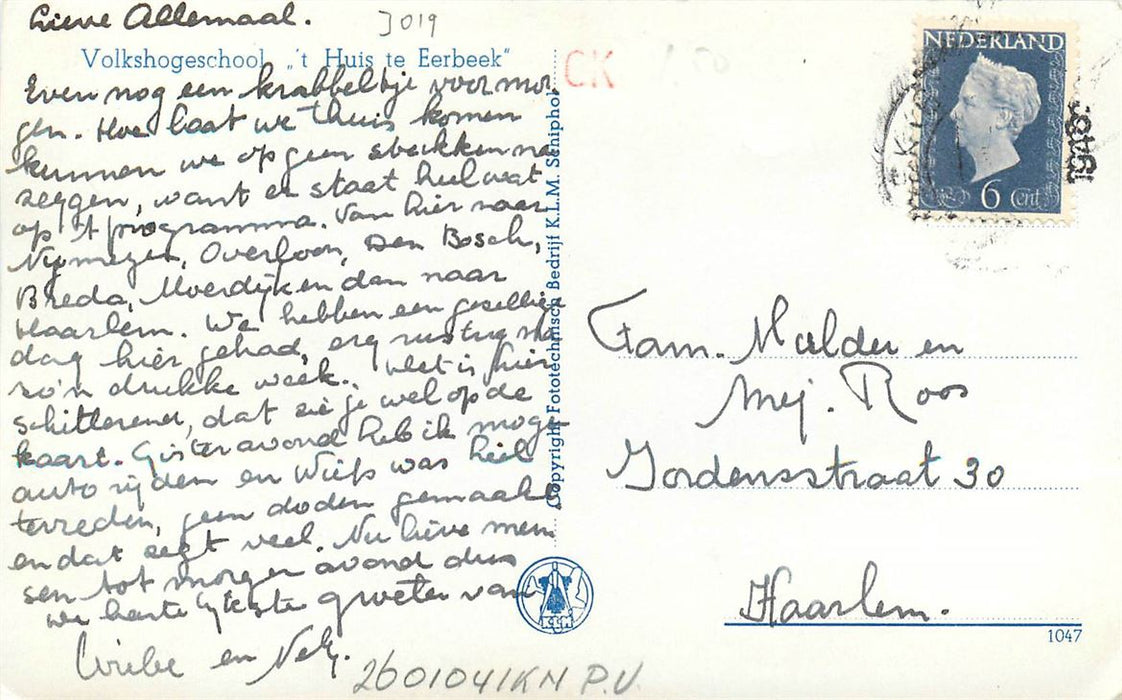 Lieve Allemaal.
3019
Volkshogeschool „'t Huis te Eerbeek"
Even nog een krabbeltje voor mor
gen. Hoe laat we thuis komen
kunnen we op geen stukken na
zeggen, want er staat heel wat
op 't programma. Van hier naar
Nijmegen, Overloon, Den Bosch,
Breda, Moerdijk en dan naar
Haarlem. We hebben een gezellige
dag hier gehad, erg rustig na
zo'n drukke week. Het is hier
schitterend, dat zie je wel op de
kaart. Gisteravond heb ik mogen
auto rijden en Wiets was heel
tevreden, geen doden gemaakt
en dat zegt veel. Nu lieve men
sen tot morgen avond dus
we hartelijkste groeten van
en Nel.
2601041KN P.V.
Copyright Fototechnisch Bedrijf K.L.M. Schiphol
KLM
CK
1.50
NEDERLAND
6 Cent
Fam. Mulder en
Mej. Roos
Jordensstraat 30
Haarlem.
1047